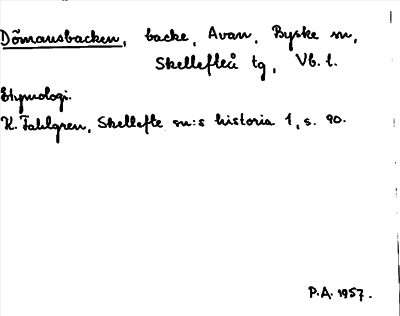 Dömansbacken, backe, Avan, Byske sn,
Skellefteå tg, Vb. l.
Etymologi.
K. Fahlgren, Skellefte sn:s historia 1, s. 90.
P.A. 1957.